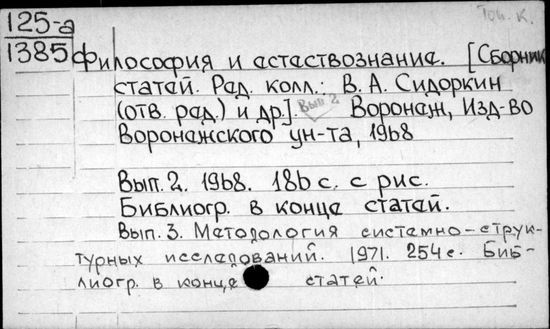 125-а
1385
Философия и естествознание. [Сборник
статей. Ред. колл.: В. А. Сидоркин
(отв. ред.) и др.] Вып 2 Воронеж, Изд-во
Воронежского ун-та, 1968
Вып. 2. 1968. 186 с. с рис.
Библиогр. в конце статей.
Вып. 3. Методология системно-струк-
турных исследований. 1971. 254 с. Биб-
лиогр. в конце статей.